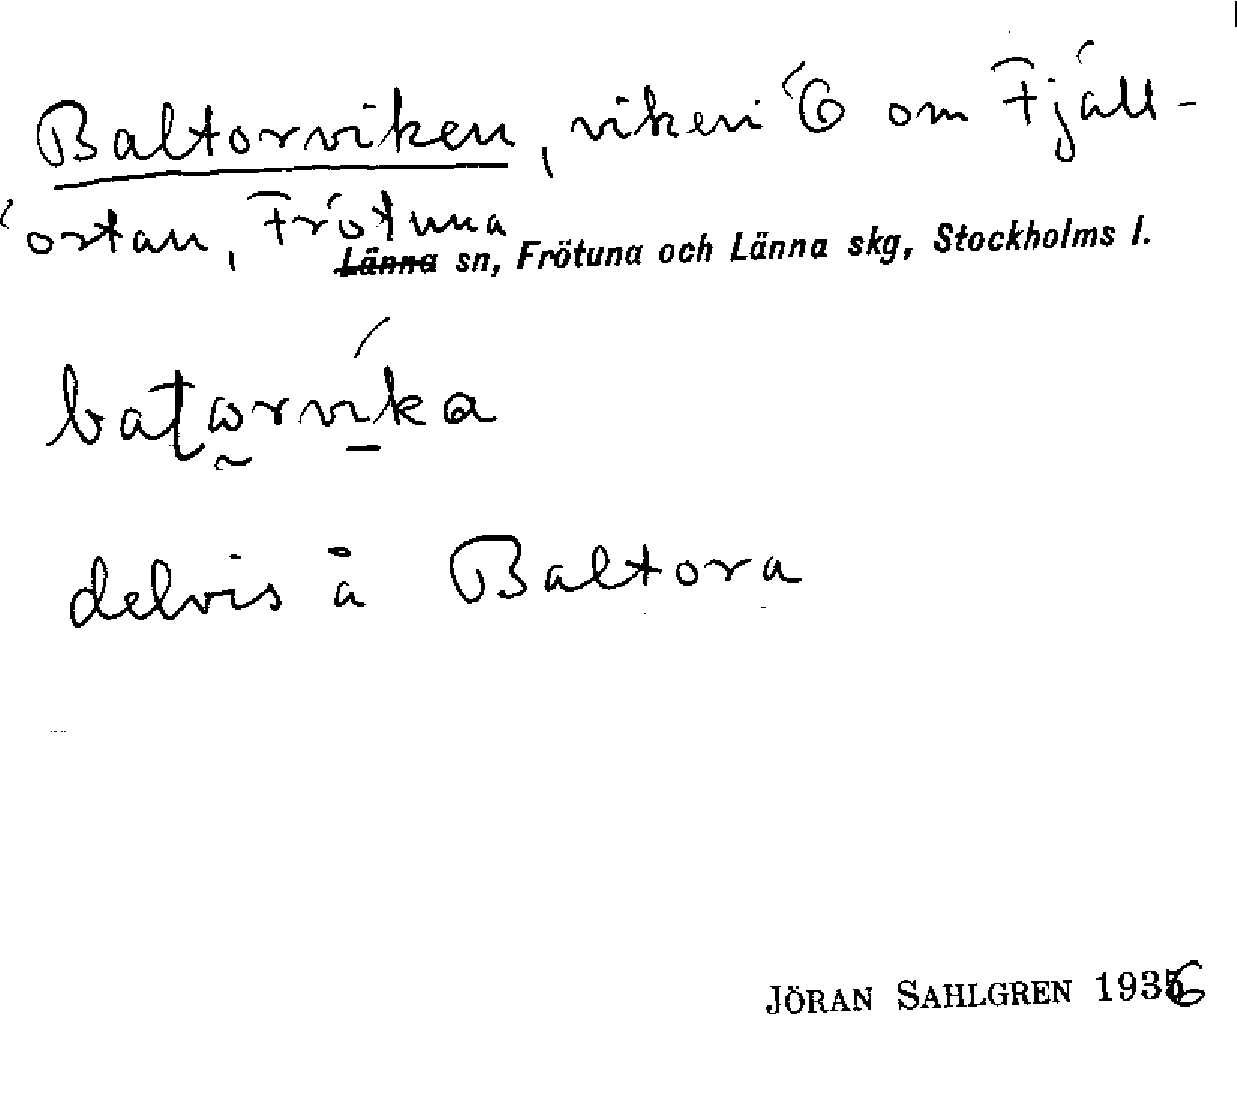 Baltorviken, viken Ö om Fjäll-
östan, Frötuna
Länna sn, Frötuna och Länna skg, Stockholms l.
baṭω̰rvi̠ka
delvis å Baltora
JÖRAN SAHLGREN 1936